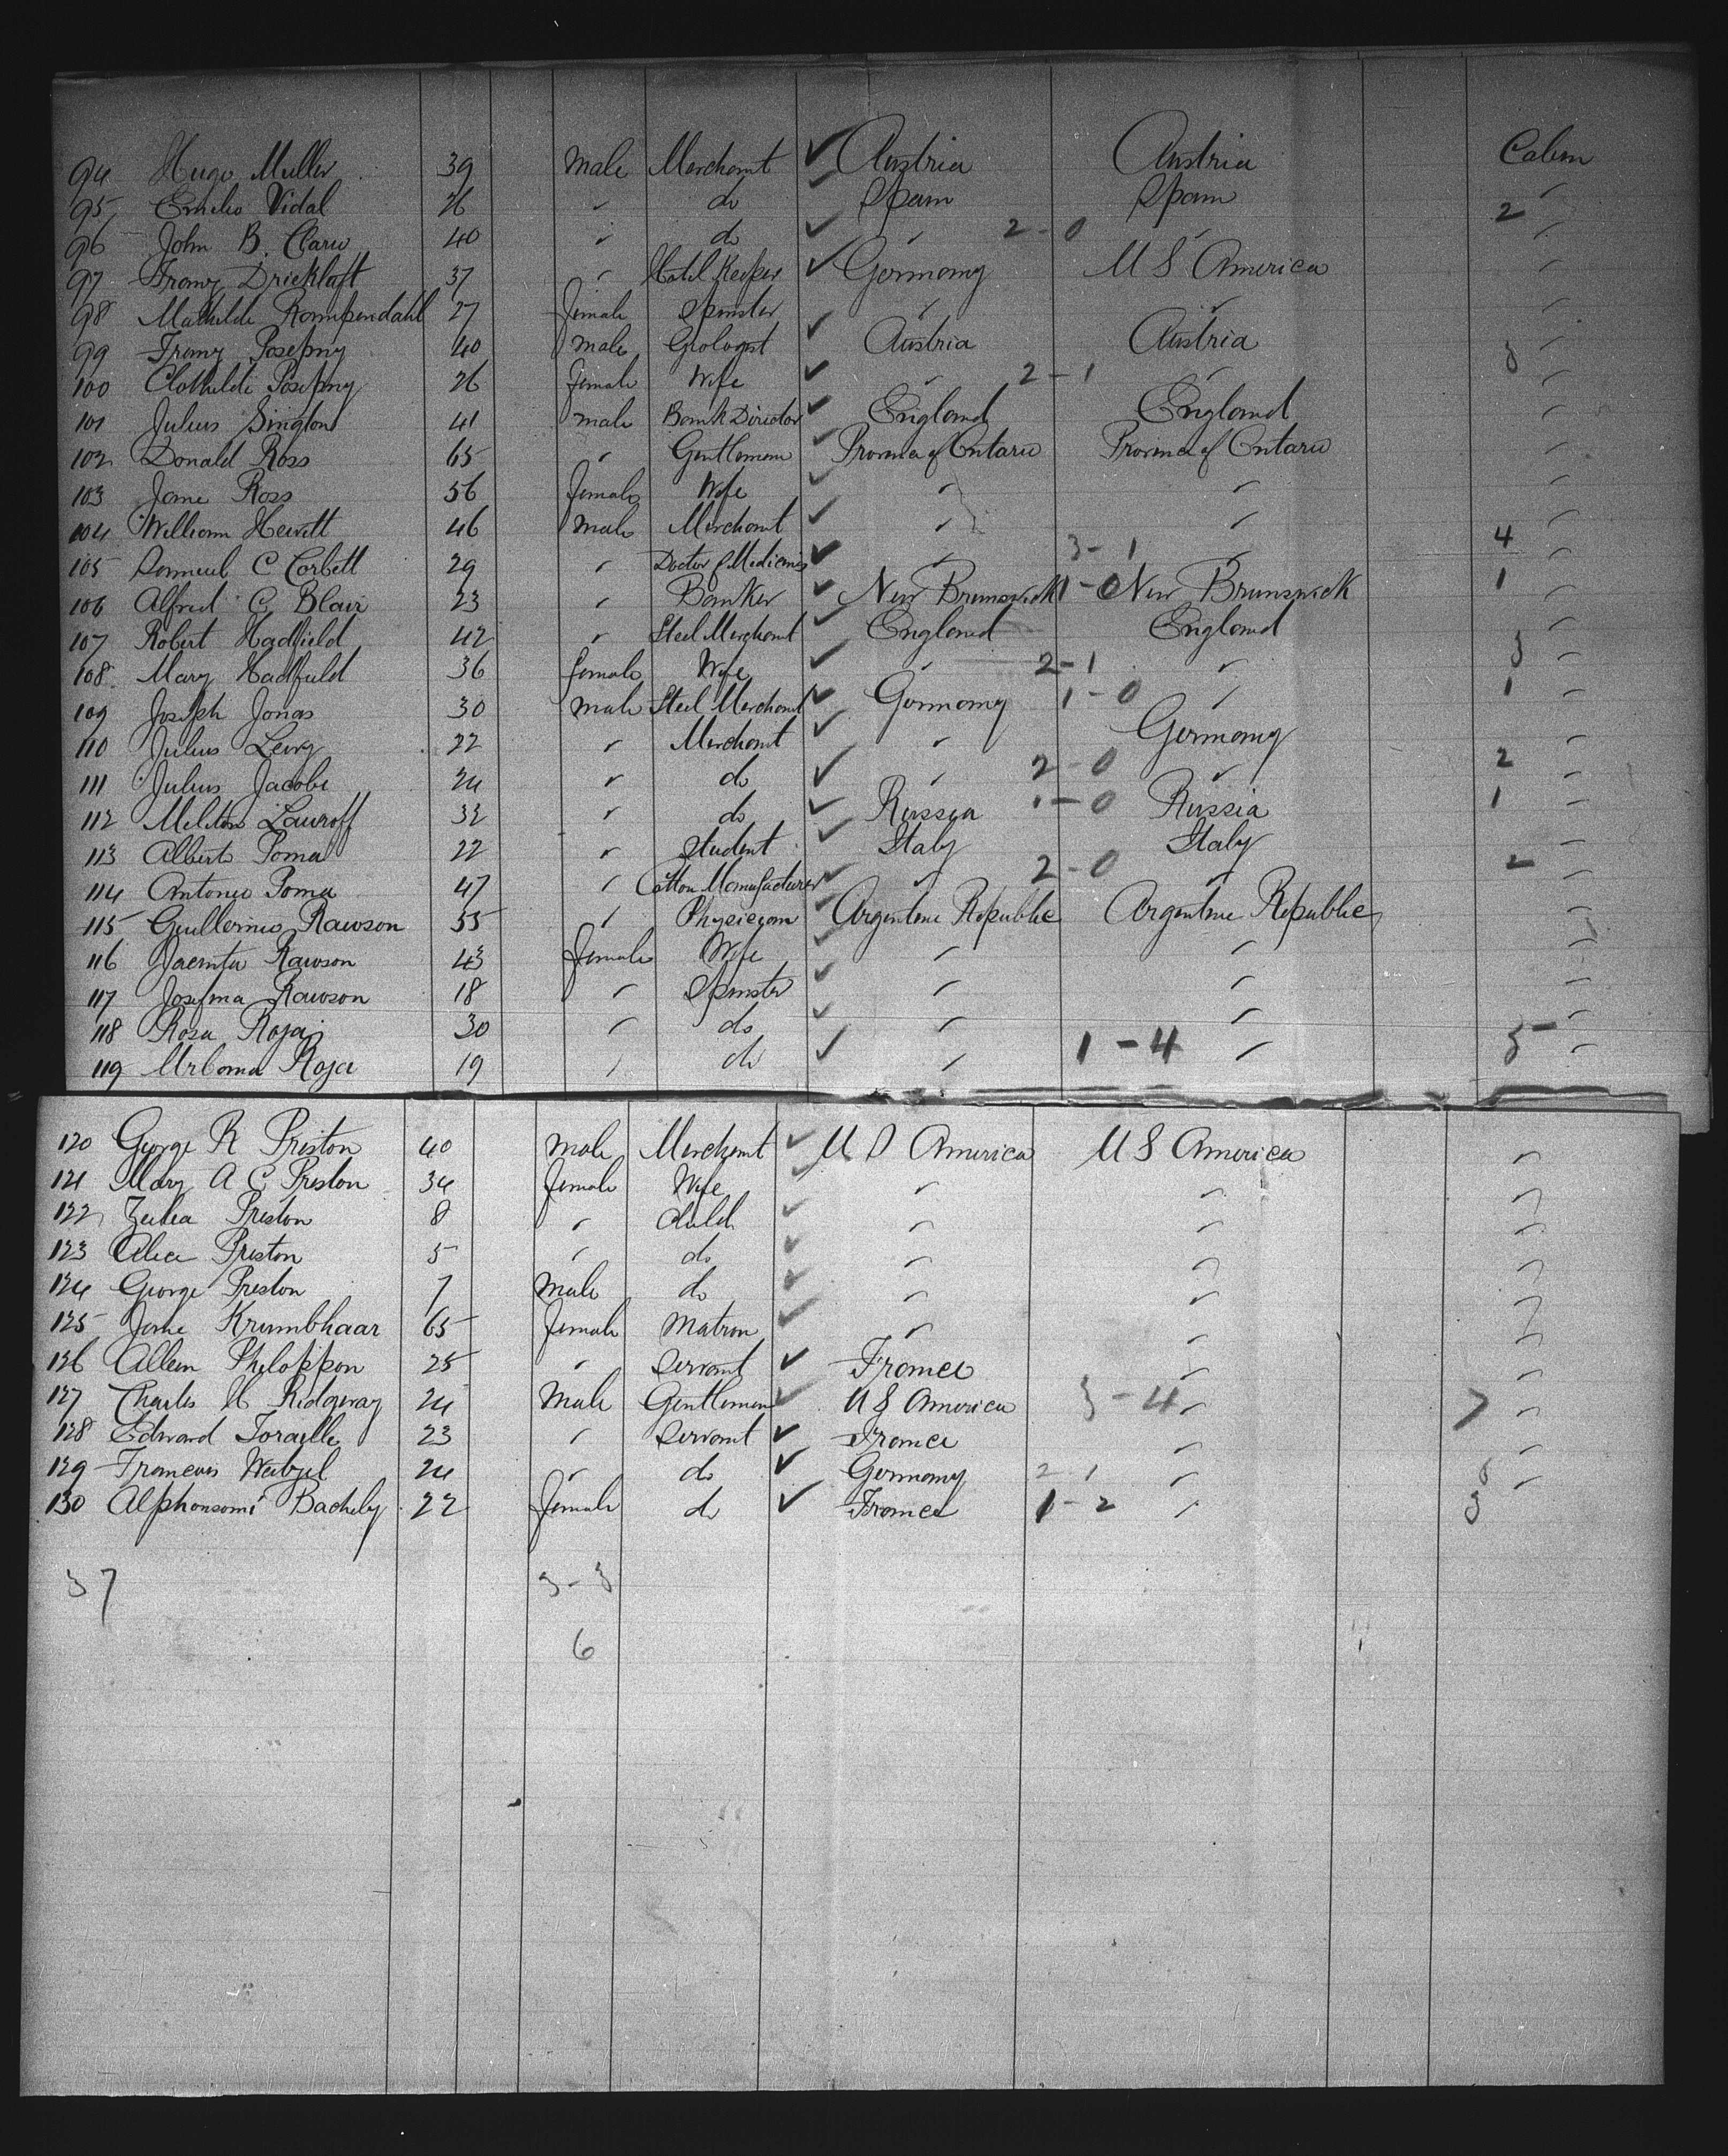 94 Hugo Muller 39 Male Merchant ✓ Austria Austria Cabin
95 Emilio Vidal 26 " do ✓ Spain Spain "
96 John B. Claru 40 " do ✓ " 2-0 " 2 "
97 Franz Dricklaft 37 " Hotel Keeper ✓ Germany U S America "
98 Mathilde Rompendahl 27 female Spinster " " "
99 Franz Posepny 40 male Geologist ✓ Austria Austria "
100 Clothilde Posepny 26 female Wife ✓ " 2-1 " 3 "
101 Julius Sington 41 male Bank Director ✓ England England "
102 Donald Ross 65 " Gentleman ✓ Province of Ontario Province of Ontario "
103 Jane Ross 56 female Wife ✓ " " "
104 William Hewitt 46 male Merchant ✓ " " "
105 Samuel C Corbett 29 " Doctor of Medicine ✓ " 3-1 " 4 "
106 Alfred G Blair 23 " Banker ✓ New Brunswick 1-0 New Brunswick 1 "
107 Robert Hadfield 42 " Steel Merchant ✓ England England "
108 Mary Hadfield 36 female Wife ✓ " 2-1 " 3 "
109 Joseph Jonas 30 male Steel Merchant ✓ Germany 1-0 " 1 "
110 Julius Levy 22 " Merchant ✓ " Germany "
111 Julius Jacobi 24 " do ✓ " 2-0 " 2 "
112 Meliton Lauroff 32 " do ✓ Russia 1-0 Russia 1 "
113 Albert Poma 22 " Student ✓ Italy Italy "
114 Antonio Poma 47 " Cotton Manufacturer ✓ " 2-0 " 2 "
115 Guillermo Rawson 55 " Physician ✓ Argentine Republic Argentine Republic "
116 Jacinta Rawson 43 female Wife ✓ " " "
117 Josefina Rawson 18 " Spinster ✓ " " "
118 Rosa Roja 30 " do ✓ " " "
119 Urbana Roja 19 " do ✓ " 1-4 " 5 "
120 George R Preston 40 Male Merchant ✓ U S America U S America "
121 Mary A C Preston 34 female Wife ✓ " " "
122 Zulia Preston 8 " Child ✓ " " "
123 Alice Preston 5 " do ✓ " " "
124 George Preston 7 Male do ✓ " " "
125 Jane Krumbhaar 65 female Matron ✓ " " "
126 Philoppon 25 " Servant ✓ France " "
127 Charles H Ridgway 24 Male Gentleman ✓ U S America 3-4 " 7 "
128 Edward Toraille 23 " Servant ✓ France " "
129 Francois Weibzel 24 " do ✓ Germany 2 1 " "
130 Bachely 22 female do ✓ France 1-2 " 3
37 3-3
6